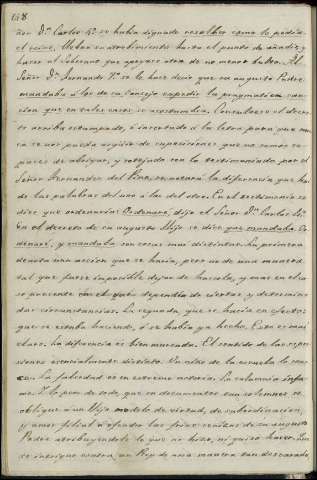 148
ñor D.ⁿ Carlos 4.º se habia dignado resolber como le pedia
el reino. Llebar su atrebimiento hasta el punto de añadir, y
hacer al Soberano que apoyase otra de no menor bulto. Al
Señor D.ⁿ Fernando 7.º se le hace decir que su augusto Padre
mandaba á los de su Consejo expedir la pragmatica san-
cion que en tales casos se acostumbra. Consultese el decre-
to arriba estampado, é insertado á la letra para que nun-
ca se nos pueda argüir de suposiciones que no somos ca-
paces de abrigar, y cotejado con la testimoniada por el
Señor Fernandez del Pino, se notará la diferencia que hai
de las palabras del uno á las del otro. En el testimonio se
dice que ordenaria: Ordenaré, dijo el Señor D.ⁿ Carlos 4.º
En el decreto de su augusto Hijo se dice que mandaba. Or-
denaré, y mandaba son cosas mui distintas. La primera
denota una accion que se haria, pero no de una manera
tal que fuese imposible dejar de hacerla, y mas en el ca-
so presente en el que dependia de ciertas y determina-
das circunstancias. La segunda, que se hacia en efecto:
que se estaba haciendo, ó se habia ya hecho. Esto es mui
claro. La diferencia es bien marcada. El sentido de las espre-
siones esencialmente distinto. Un niño de la escuela lo cono-
ce. La falsedad es en estremo notoria. La calumnia infa-
me. Y lo peor de todo, que en documentos tan solemnes se
obligue á un Hijo modelo de virtud, de subordinacion,
y amor filial á ofender las frias cenizas de su augusto
Padre atribuyendole lo que no hizo, ni quiso hacer. Que
se intrigue contra un Rey de una manera tan descarada,